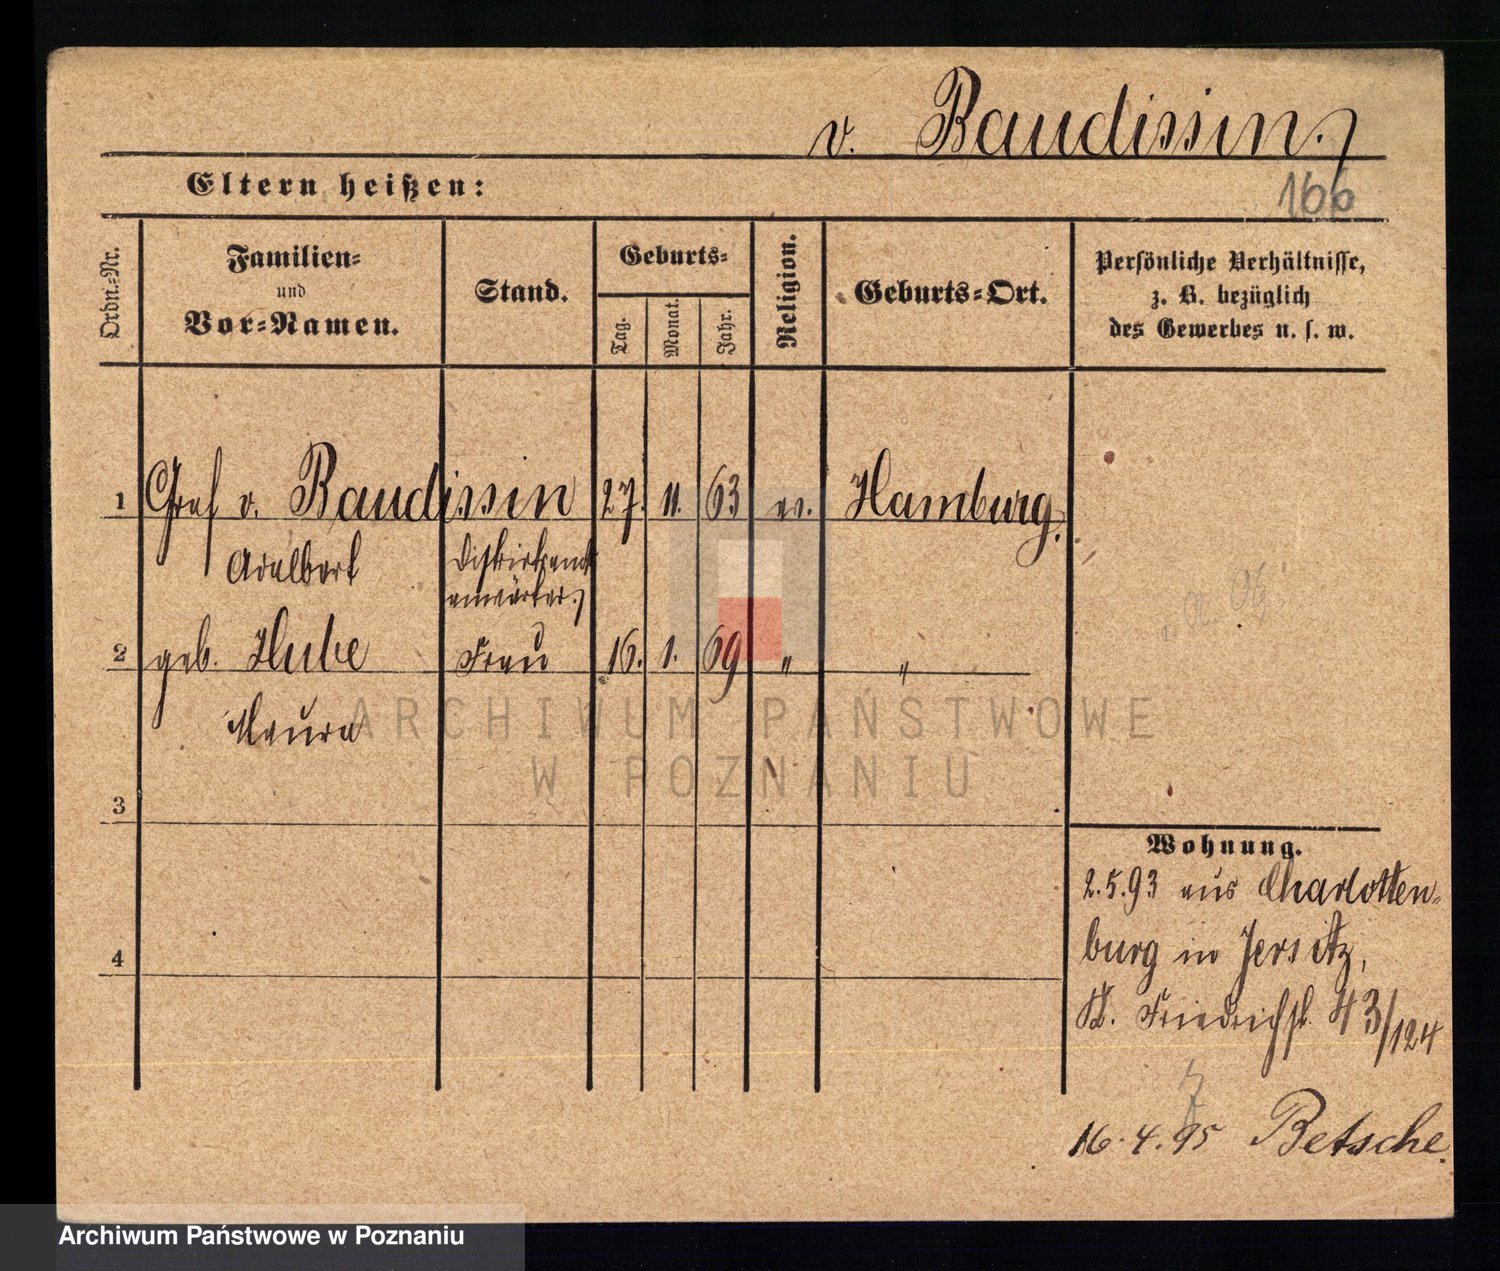 v. Baudissin.
166
Eltern heißen:
Ordn.-Nr.
Familien-
und
Vor-Namen.
Stand.
Geburts-
Tag.
Monat.
Jahr.
Religion.
Geburts-Ort.
Persönliche Verhältnisse,
z. B. bezüglich
des Gewerbes u. s. w.
1 Graf v. Baudissin 27. 11. 63 ev. Hamburg.
Adalbert Distriktsamts
anwärter.
2 geb. Hube Frau 16. 1. 69 " "
Maura
3
4
Wohnung.
2.5.93 aus Charlotten-
burg in Jersitz,
Kl. Friedrichst. 43/124
16.4.95 Betsche.
ARCHIWUM PAŃSTWOWE
W POZNANIU
Archiwum Państwowe w Poznaniu